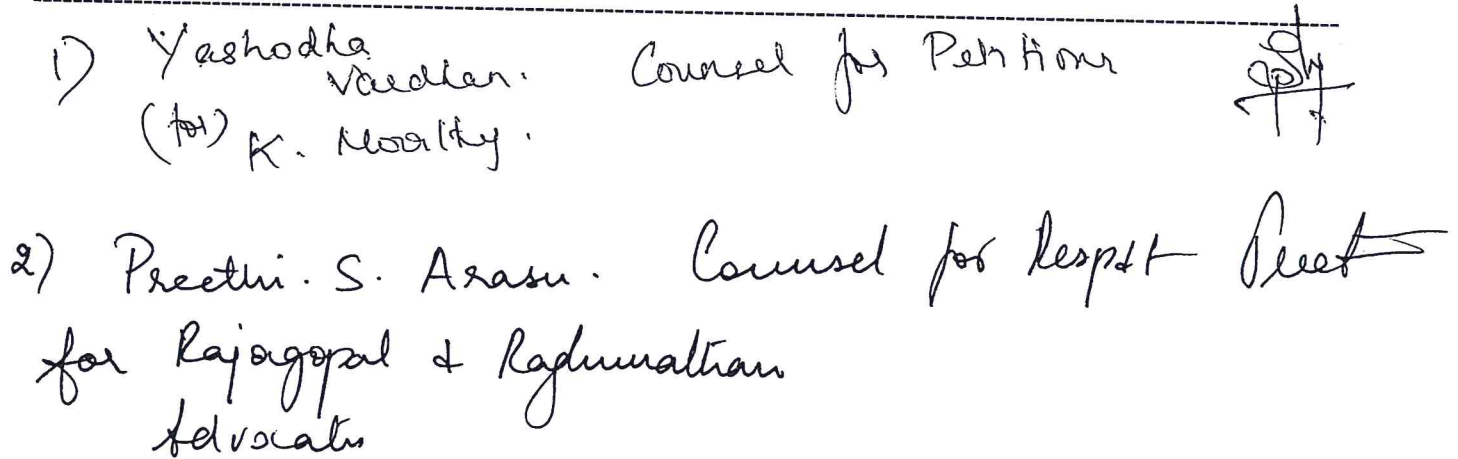 1) Yashodha Vardhan. Counsel for Petitioner
(for) K. Moorthy.
2) Preethi. S. Arasu. Counsel for Respdt
for Rajagopal & Raghunathan
Advocates